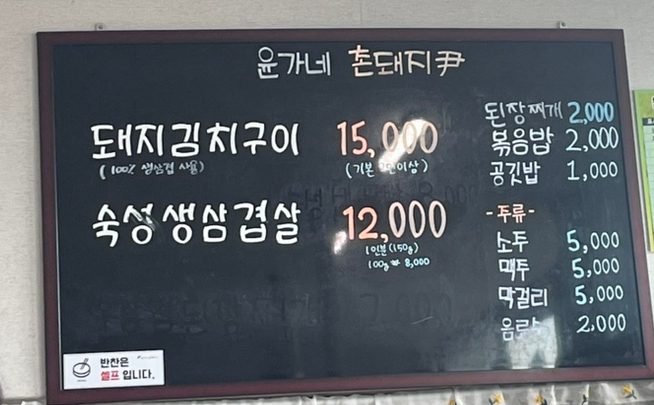 윤가네 촌돼지尹
돼지김치구이 15,000
(100% 생삼겹 사용) (기본 이상)
숙성생삼겹살 12,000
1인분(150g)
100g 8,000
된장찌개 2,000
볶음밥 2,000
공깃밥 1,000
-주류-
소주 5,000
맥주 5,000
막걸리 5,000
음료수 2,000
반찬은
셀프입니다.